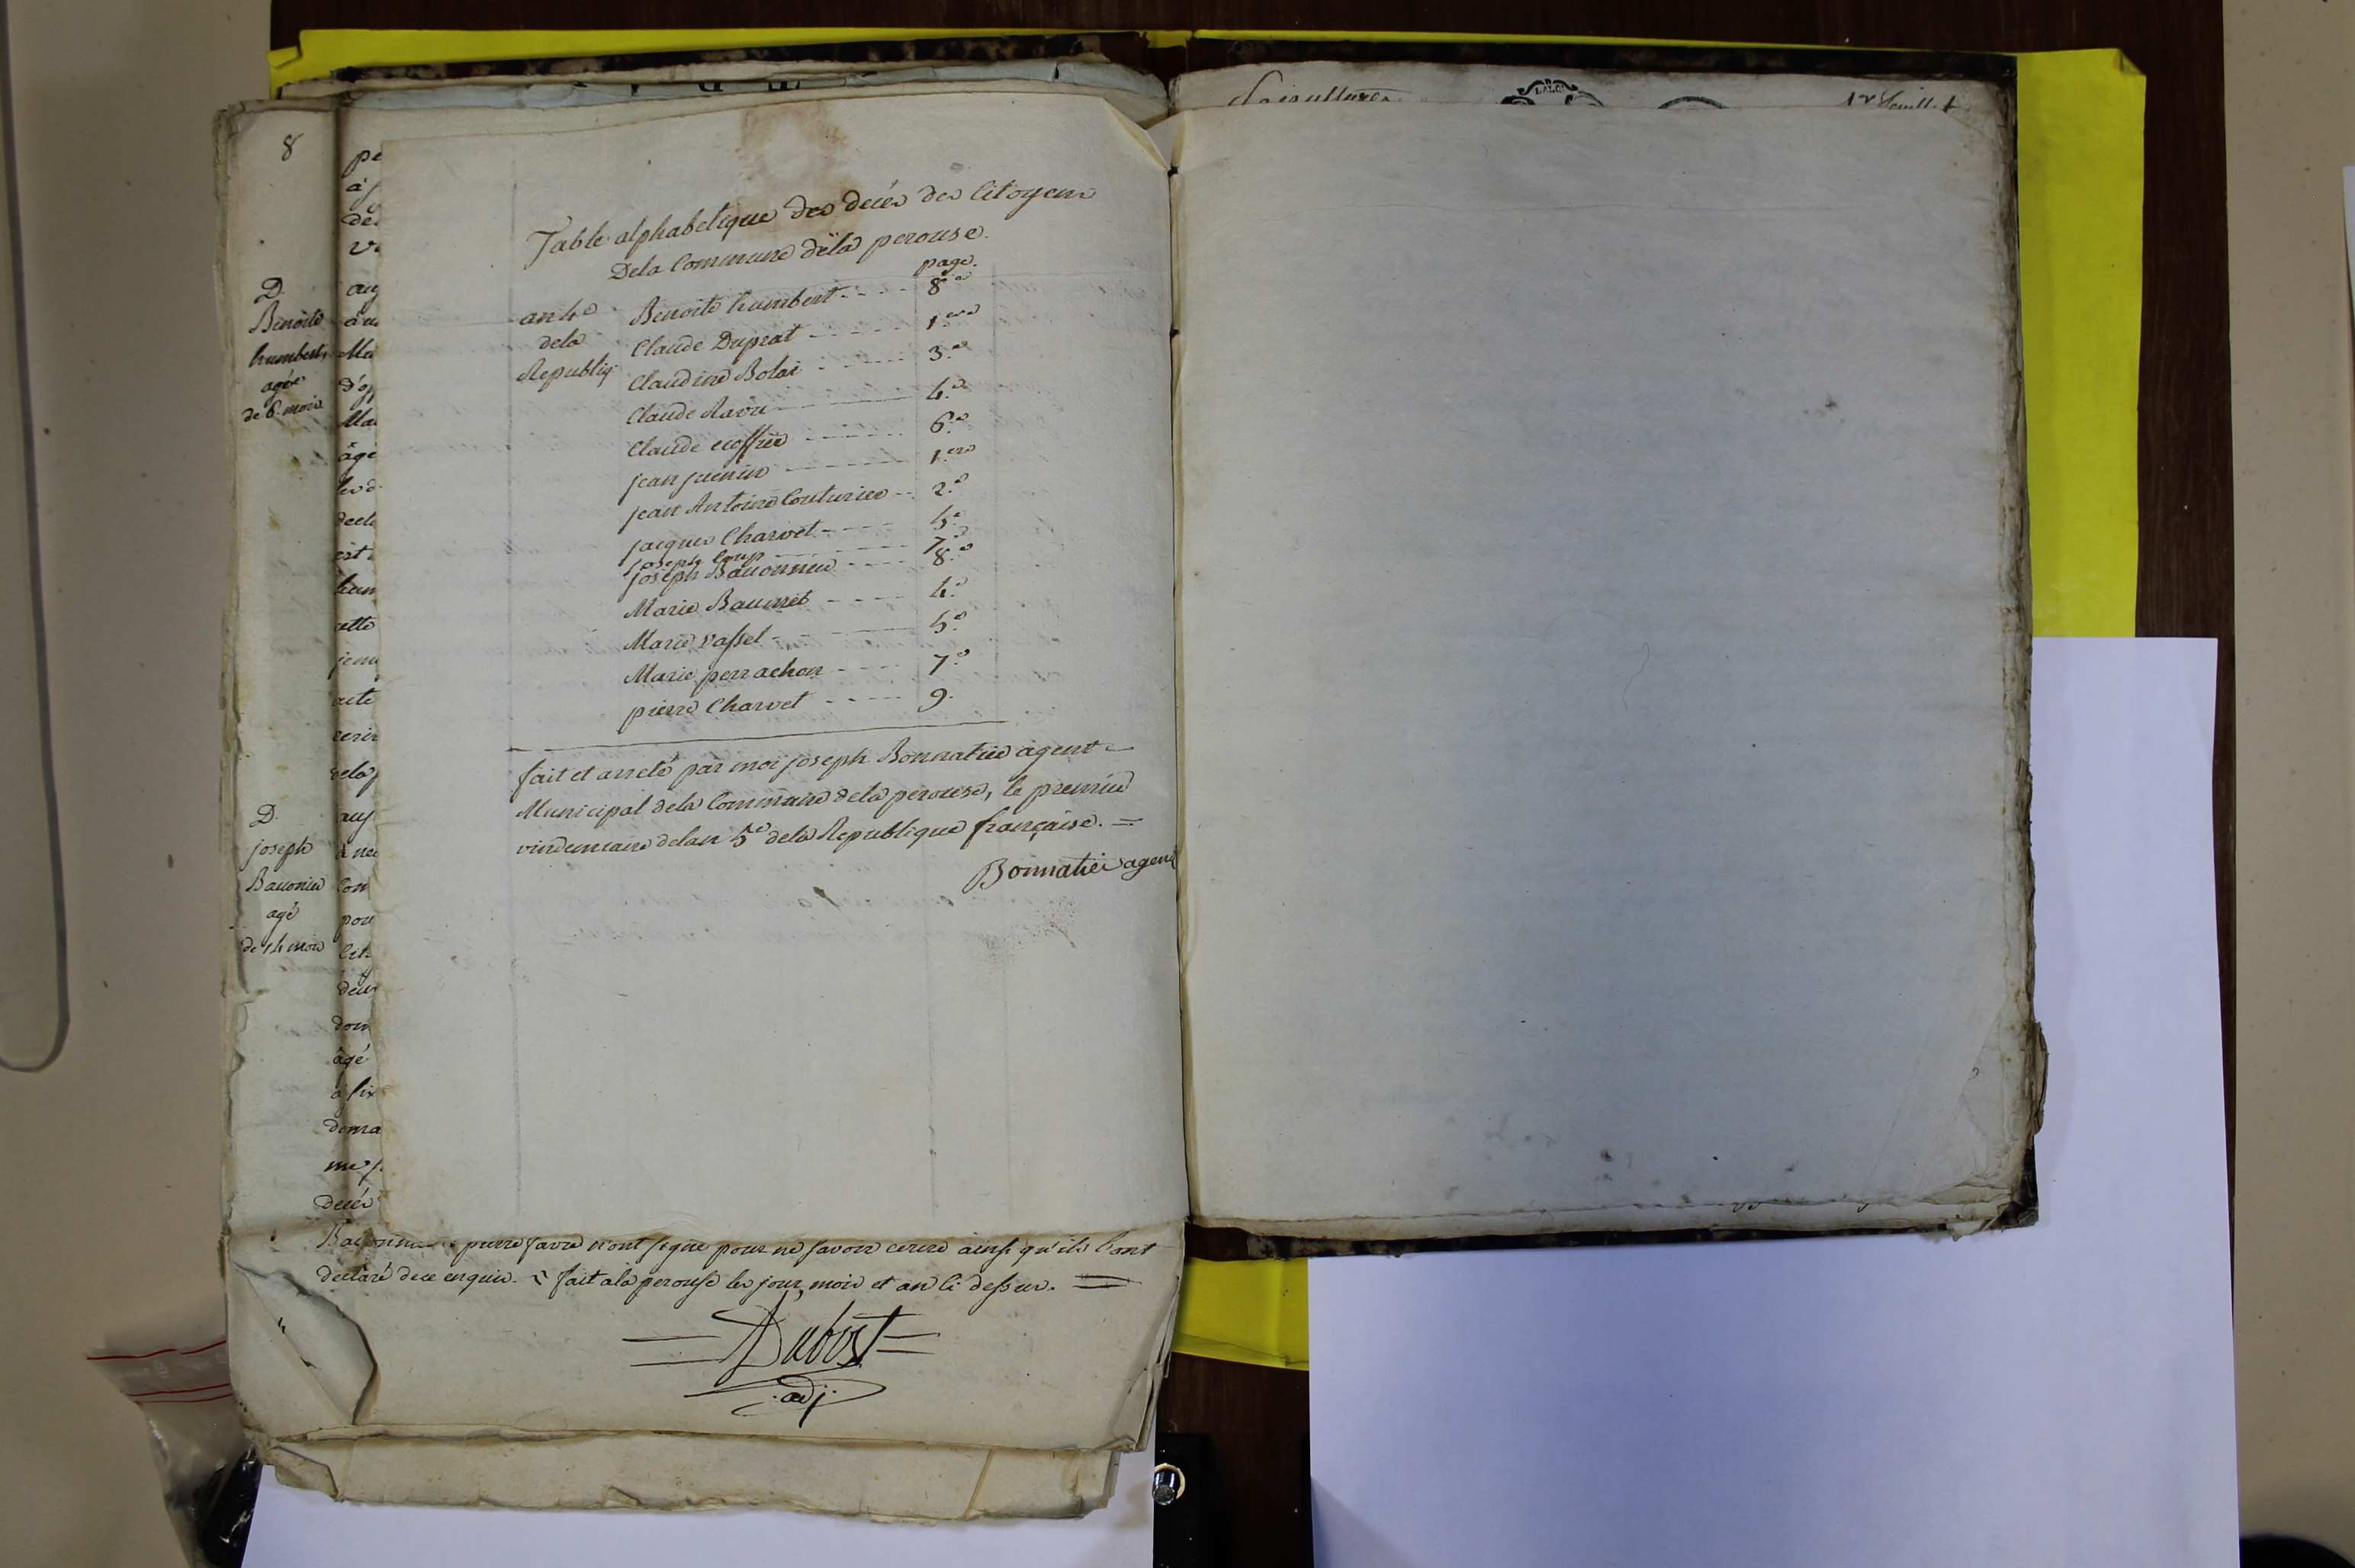 8
D.
Benoite
humbert,
agée
de 6 mois
D.
joseph
Bauonier
agé
de 14 mois
Table alphabetique des decés des Citoyens
Dela Commune dela perouse.
page.
an 4e Benoite humbert 8e
dela Claude Duprat 1ere
Republiq Claudine Bolai 3e
Claude Ravu 4e
Claude 6e
jean juenin 1ere
jean Antoine Couturier 2e
jacques Charvet 5e
joseph Loup 7e
joseph Bauonnier 8e
Marie Baumet 4e
Marie vassel 5e
Marie perrachon 7e
pierre Charvet 9.
fait et arreté par moi joseph Bonnatier agent
Municipal dela Commune dela perouse, le premier
vindemiaire delan 5e dela Republique française. =
Bonnatier agent
pierre favre n'ont signé pour ne savoir ecrire ainsi qu'ils l'ont
declaré dece enquis. fait ala perouse les jour, mois et an ci dessus. =
Dubost
adj.